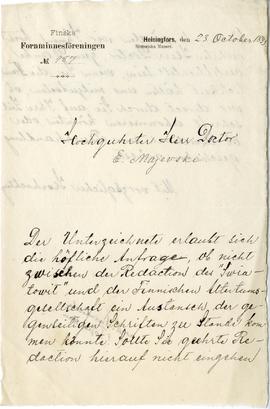 Finska
Fornminnesföreningen
Helsingfors, den 23 October 189
Historiska Museet.
№ 787
Hochgeehrter Herr Doctor
E. Majevski
Der Unterzeichnete erlaubt sich
die höfliche Anfrage, ob nicht
zwischen der Redaction des "Swia-
towit" und der Finnischen Altertums-
gesellschaft ein Austausch der ge-
genseitigen Schriften zu Stande kom-
men könnte. Sollte die geehrte Re-
daction hierauf nicht eingehen